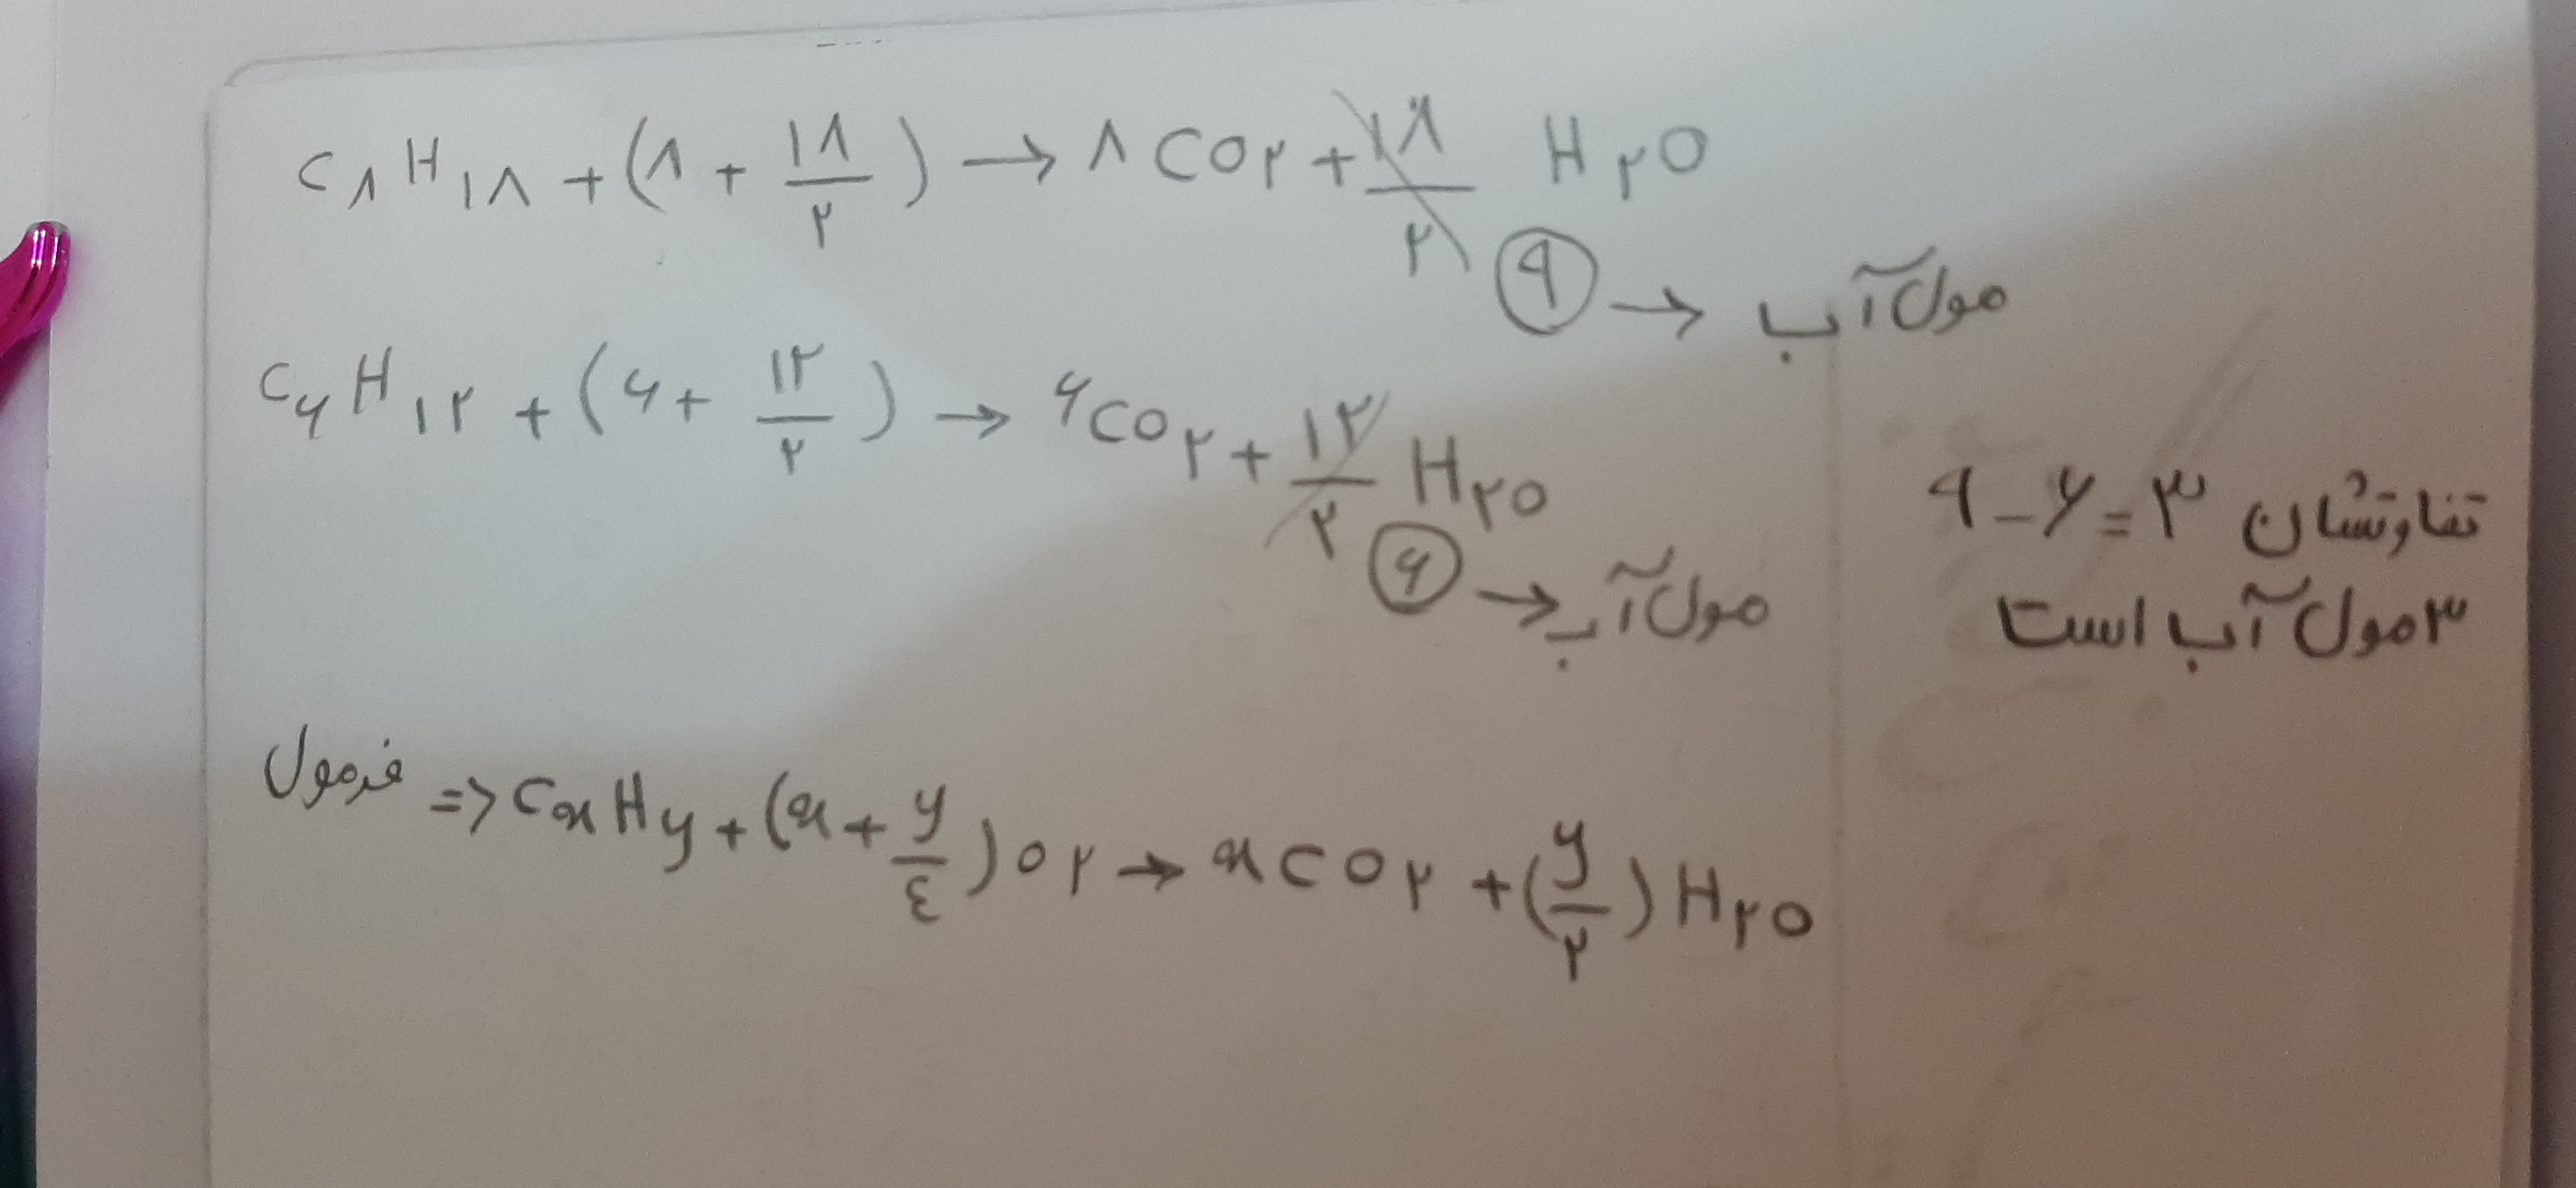 C۸H۱۸ + (۸ + ۱۸/۲) → ۸CO۲ + ۱۸/۲ H۲O
۹ → مول آب
C۶H۱۲ + (۶ + ۱۲/۲) → ۶CO۲ + ۱۲/۲ H۲O
۶ → مول آب
تفاوتشان ۹ - ۶ = ۳
۳ مول آب است
فرمول => CxHy + (x + y/٤)O۲ → xCO۲ + (y/۲)H۲O